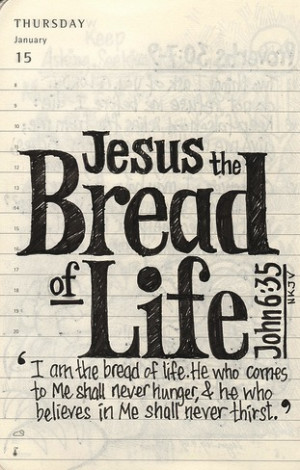 THURSDAY
January
15
Jesus the
Bread
of Life
John 6:35
NKJV
‘I am the bread of life. He who comes
to Me shall never hunger, & he who
believes in Me shall never thirst.’